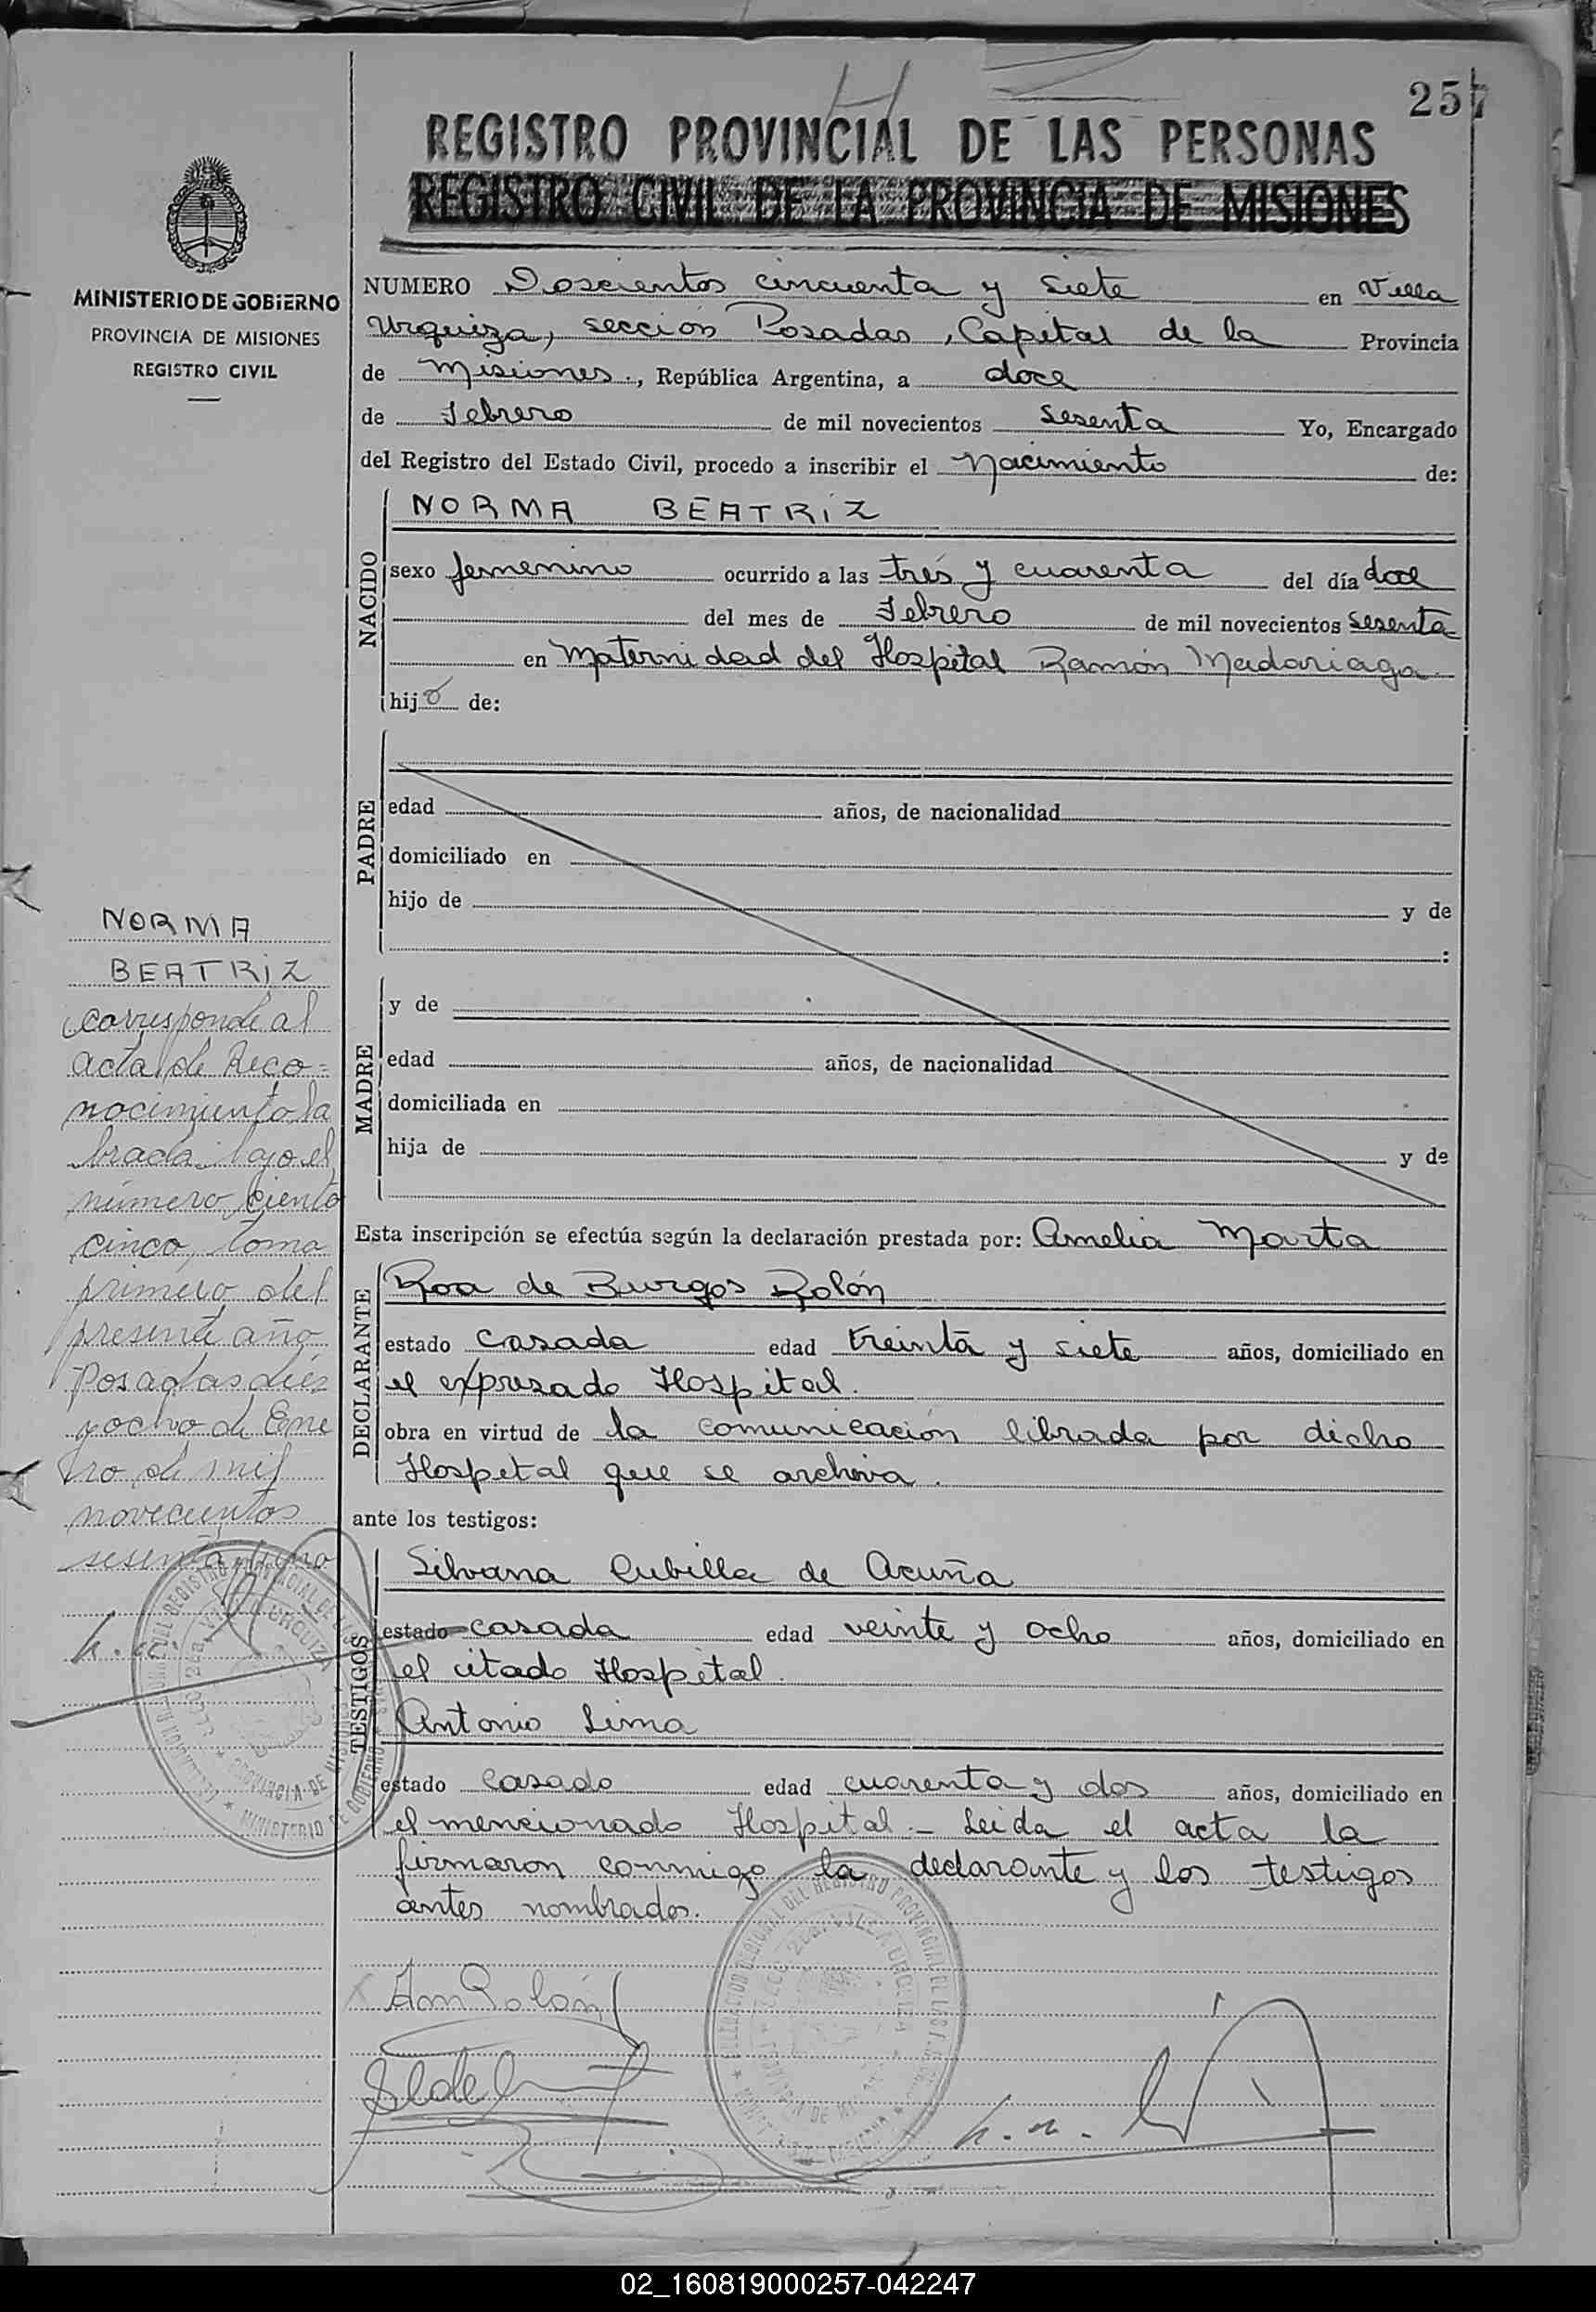 257
REGISTRO PROVINCIAL DE LAS PERSONAS
REGISTRO CIVIL DE LA PROVINCIA DE MISIONES
MINISTERIO DE GOBIERNO
PROVINCIA DE MISIONES
REGISTRO CIVIL
NUMERO Doscientos cincuenta y siete en Villa
Urquiza, sección Posadas, Capital de la Provincia
de Misiones., República Argentina, a doce
de Febrero de mil novecientos sesenta Yo, Encargado
del Registro del Estado Civil, procedo a inscribir el Nacimiento de:
NACIDO
NORMA BEATRIZ
sexo femenino ocurrido a las tres y cuarenta del día doce
del mes de Febrero de mil novecientos sesenta
en Maternidad del Hospital Ramón Madariaga
hij de:
PADRE
edad años, de nacionalidad
domiciliado en
hijo de y de
:
MADRE
y de
edad años, de nacionalidad
domiciliada en
hija de y de
Esta inscripción se efectúa según la declaración prestada por: Amelia Marta
DECLARANTE
Roa de Burgos Rolón
estado casada edad treinta y siete años, domiciliado en
el expresado Hospital.
obra en virtud de la comunicación librada por dicho
Hospital que se archiva.
ante los testigos:
TESTIGOS
Silvana Cubilla de Acuña
estado casada edad veinte y ocho años, domiciliado en
el citado Hospital.
Antonio Lima
estado casado edad cuarenta y dos años, domiciliado en
el mencionado Hospital.- Leida el acta la
firmaron conmigo la declarante y los testigos
antes nombrados.
NORMA
BEATRIZ
corresponde al
acta de Reco=
nocimiento la
brada bajo el
número ciento
cinco, tomo
primero del
presente año
Posadas diés
y ocho de Ene
ro de mil
novecientos
sesenta y uno
DELEGACION REGIONAL DEL REGISTRO PROVINCIAL DE LAS
SECC. 2da. VILLA URQUIZA
PROVINCIA DE MISIONES
MINISTERIO DE GOBIERNO
DELEGACION REGIONAL DEL REGISTRO PROVINCIAL DE LAS
SECC. 2da. VILLA URQUIZA
02_160819000257-042247